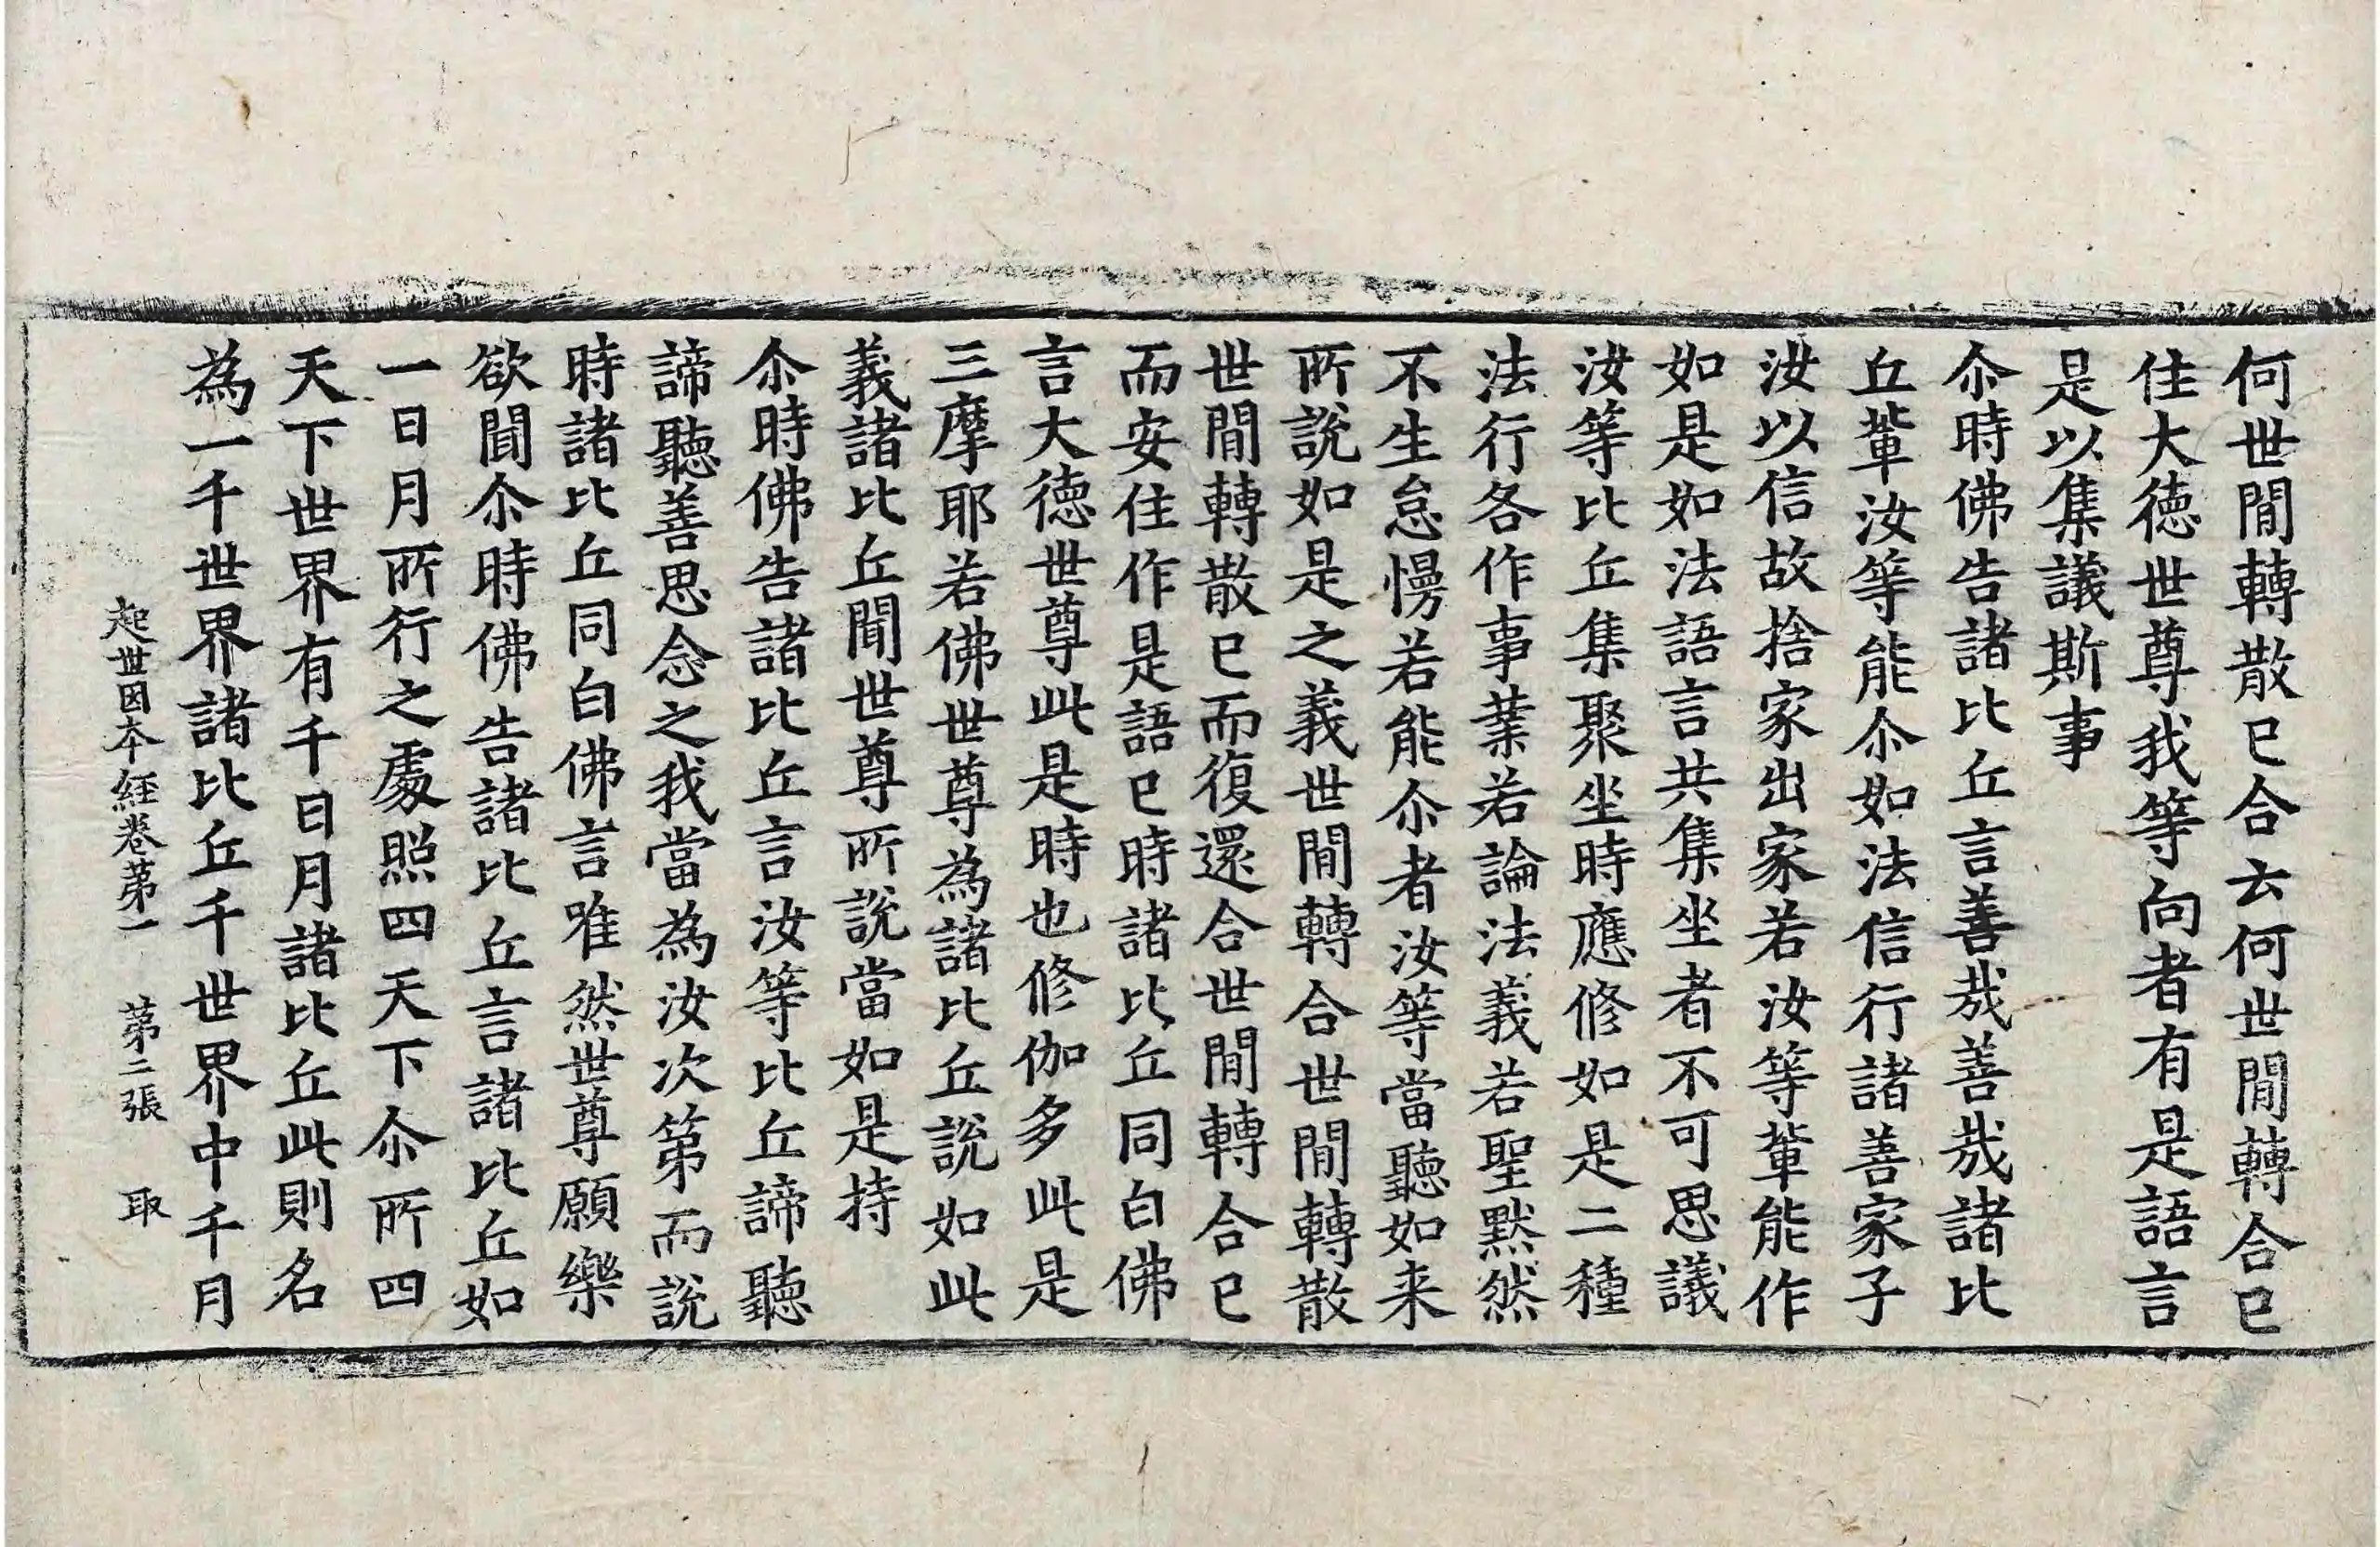 何世間轉散已合云何世間轉合已
住大德世尊我等向者有是語言
是以集議斯事
尒時佛告諸比丘言善哉善哉諸比
丘輩汝等能尒如法信行諸善家子
汝以信故捨家出家若汝等輩能作
如是如法語言共集坐者不可思議
汝等比丘集聚坐時應修如是二種
法行各作事業若論法義若聖默然
不生怠慢若能尒者汝等當聽如来
所說如是之義世間轉合世間轉散
世間轉散已而復還合世間轉合已
而安住作是語已時諸比丘同白佛
言大德世尊此是時也修伽多此是
三摩耶若佛世尊為諸比丘說如此
義諸比丘聞世尊所說當如是持
尒時佛告諸比丘言汝等比丘諦聽
諦聽善思念之我當為汝次第而說
時諸比丘同白佛言唯然世尊願樂
欲聞尒時佛告諸比丘言諸比丘如
一日月所行之處照四天下尒所四
天下世界有千日月諸比丘此則名
為一千世界諸比丘千世界中千月
起世因本經卷苐一 苐三張 取